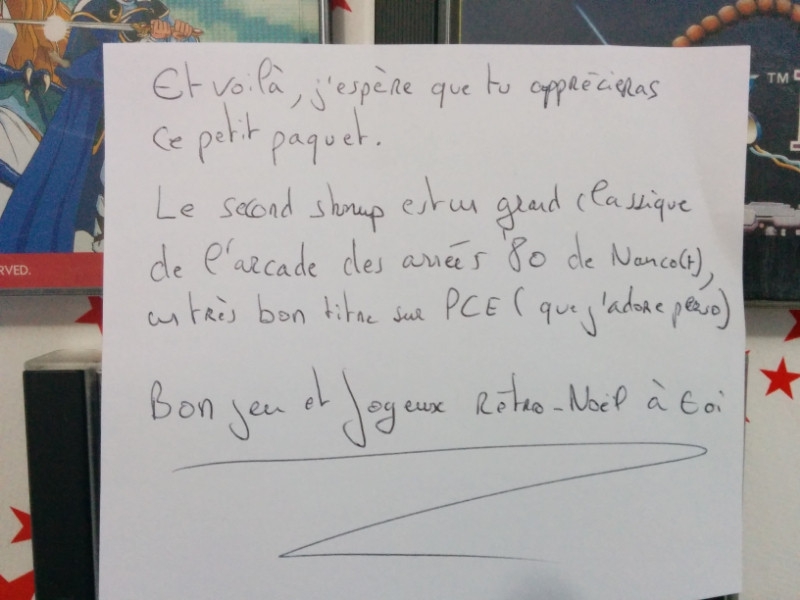 Et voilà, j'espère que tu apprécieras
ce petit paquet.
Le second shmup est un grand classique
de l'arcade des années '80 de Namco(t),
un très bon titre sur PCE (que j'adore perso)
Bon jeu et Joyeux Rétro-Noël à toi
RVED.
TM